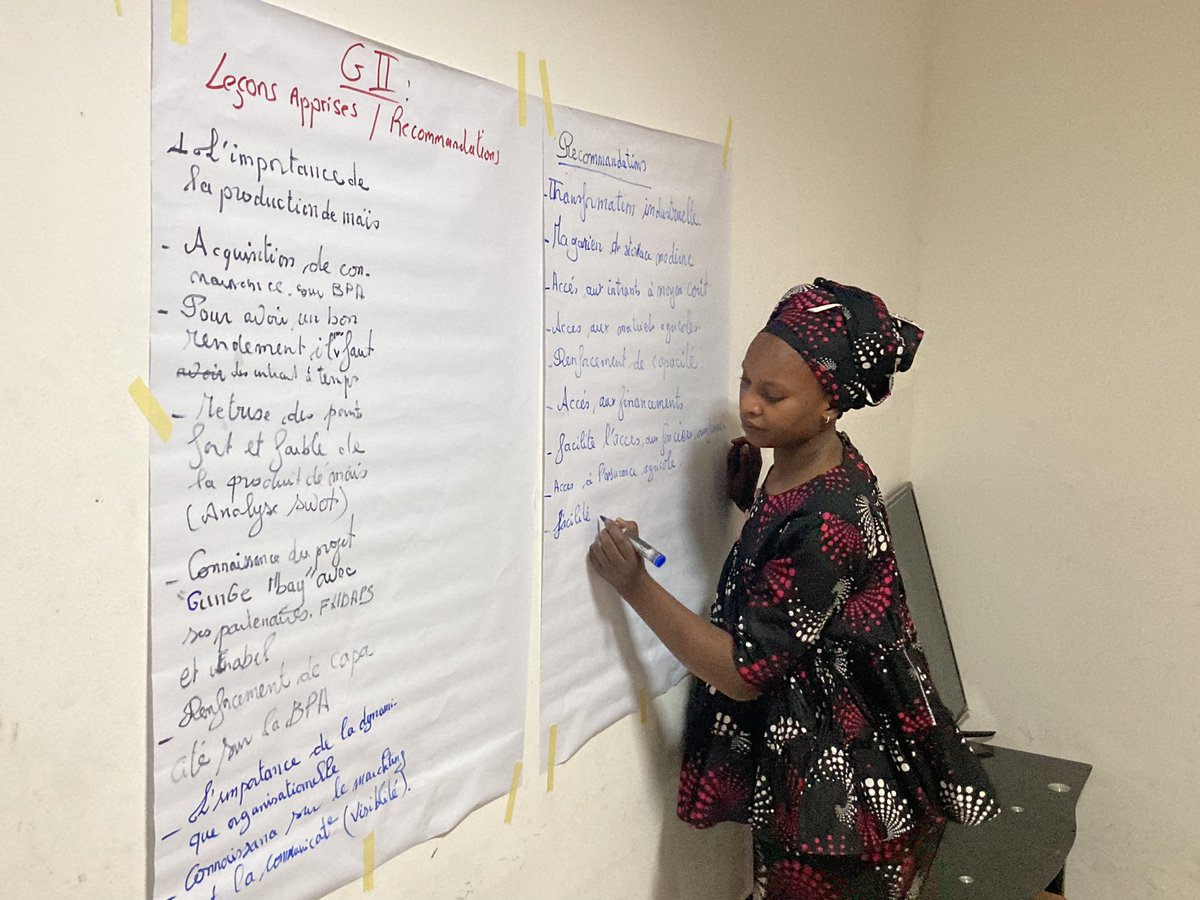 G II :
Leçons Apprises / Recommandations
1- L'importance de
la production de maïs
- Acquisition de con-
naissance sur BPA
- Pour avoir un bon
rendement, il faut
avoir des intrant à temps
- Metrise des points
fort et faible de
la produit de maïs
(Analyse SWOT)
- Connaissance du projet
"GUNGE "bay" avec
ses partenaires.
et Enabel
- Renforcement de capa-
cité sur la BPA
- L'importance de la dynami-
que organisationelle
Connaissana sur le
la communicate (Visibilité).
Recommandations
- Transformation industruelle.
- Magasien de stokage modiene
- Accés aux intrants à moyen coût
- Acces aux matuels agricolles.
- Renfacement de capacité.
- Accés aux financements
- facilité l'acces aux fonciers
- Acces à l'assurance agricole.
- facilité